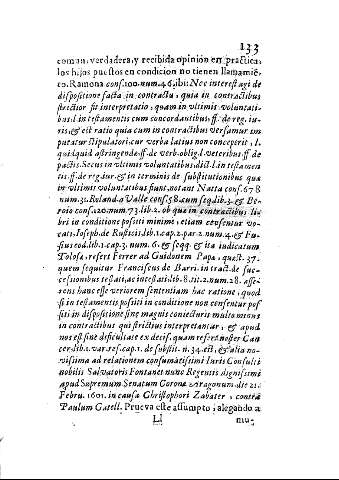 133
coman, verdadera, y recibida opinion en practica,
los hijos puestos en condicion no tienen llamamiē-
to. Ramona cons. 100. num. 46. ibi: Nec interest agi de
dispositione facta in contractu, quia in contractibus
strictior fit interpretatio, quam in vltimis voluntati-
bus. l in testamentis cum concordantibus. ff. de reg. iu-
ris, & est ratio quia cum in contractibus versamur im
putatur stipulatori, cur verba latius non conceperit, l.
quidquid astringende. ff. de verb. oblig. l. veteribus. ff. de
pactis. Secus in vltimis voluntatibus dict. l. in testamen
tis. ff. de reg. iur. & in terminis de substitutionibus quæ
in vltimis voluntatibus fiunt, notant Natta cons. 678
num. 31. Roland. a Valle cons. 58. cum seq. lib. 3. & Be-
roio cons. 120. num. 73. lib. 2. ob que in contractibus li-
beri in conditione positi minime, etiam censentur vo-
cati. Ioseph. de Rusticis lib. 1. cap. 2. par. 2. num. 4. & Fu-
sius eod. lib. 1. cap. 3. num. 6. & seqq. & ita iudicatum
Tolosa, refert Ferrer ad Guidonem Papa, quest. 37.
quem sequitur Franciscus de Barri. in tract. de suc-
cessionibus testati, ac intestati. lib. 8. tit. 2. num. 28. asse-
rens hanc esse veriorem sententiam hac ratione, quod
si in testamentis positi in conditione non censentur pos
siti in dispositione sine magnis coniecturis multo minus
in contractibus qui strictius interpretantur, & apud
nos est sine dificultate ex decis. quam refert noster Can
cer. lib. 1. var. res. cap. 1. de substit. n. 34. est, & alia no-
vissima ad relationem consumatissimi Iuris Consulti
nobilis Salvatoris Fontanet nunc Regentis dignissimi
apud Supremum Senatum Coronæ Aragonum die 21.
Febru. 1601. in causa Christophori Zabater, contra
Paulum Gatell. Prueva este assumpto, alegando a
Ll mu-